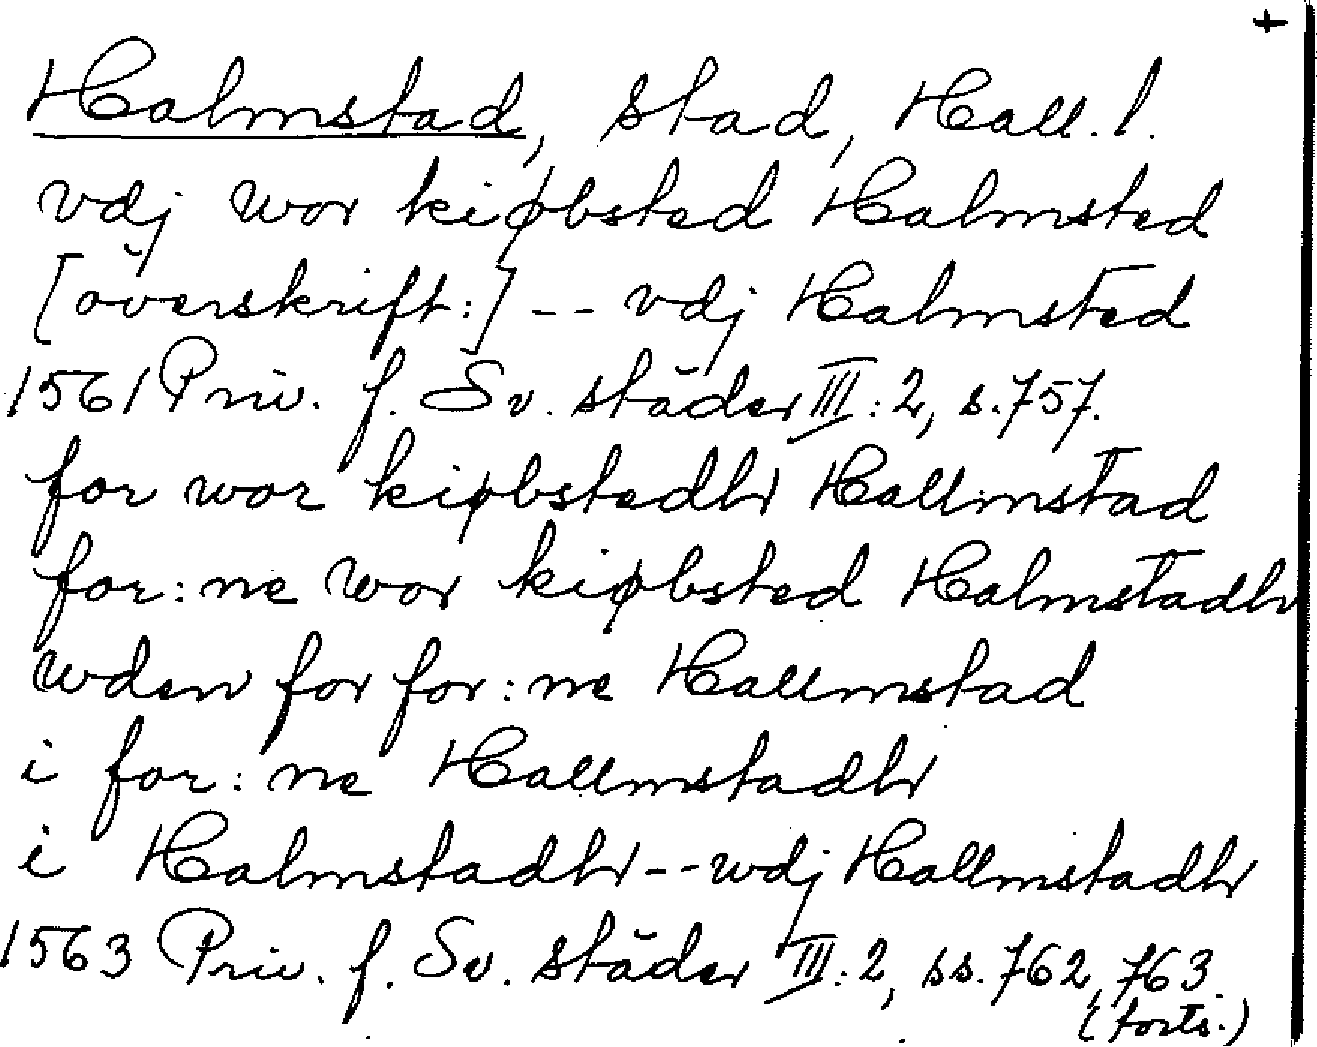 +
Halmstad, stad, Hall. l.
vdj wor kiøbsted Halmsted
[överskrift:] -- vdj Halmsted
1561 Priv. f. Sv. städer III:2, s. 757.
for wor kiøbstedh Hallmstad
for:ne wor kiøbsted Halmstadh
wden for for:ne Hallmstad
i for:ne Hallmstadh
i Halmstadh -- wdj Hallmstadh
1563 Priv. f. Sv. städer III:2, ss. 762, 763.
(forts.)